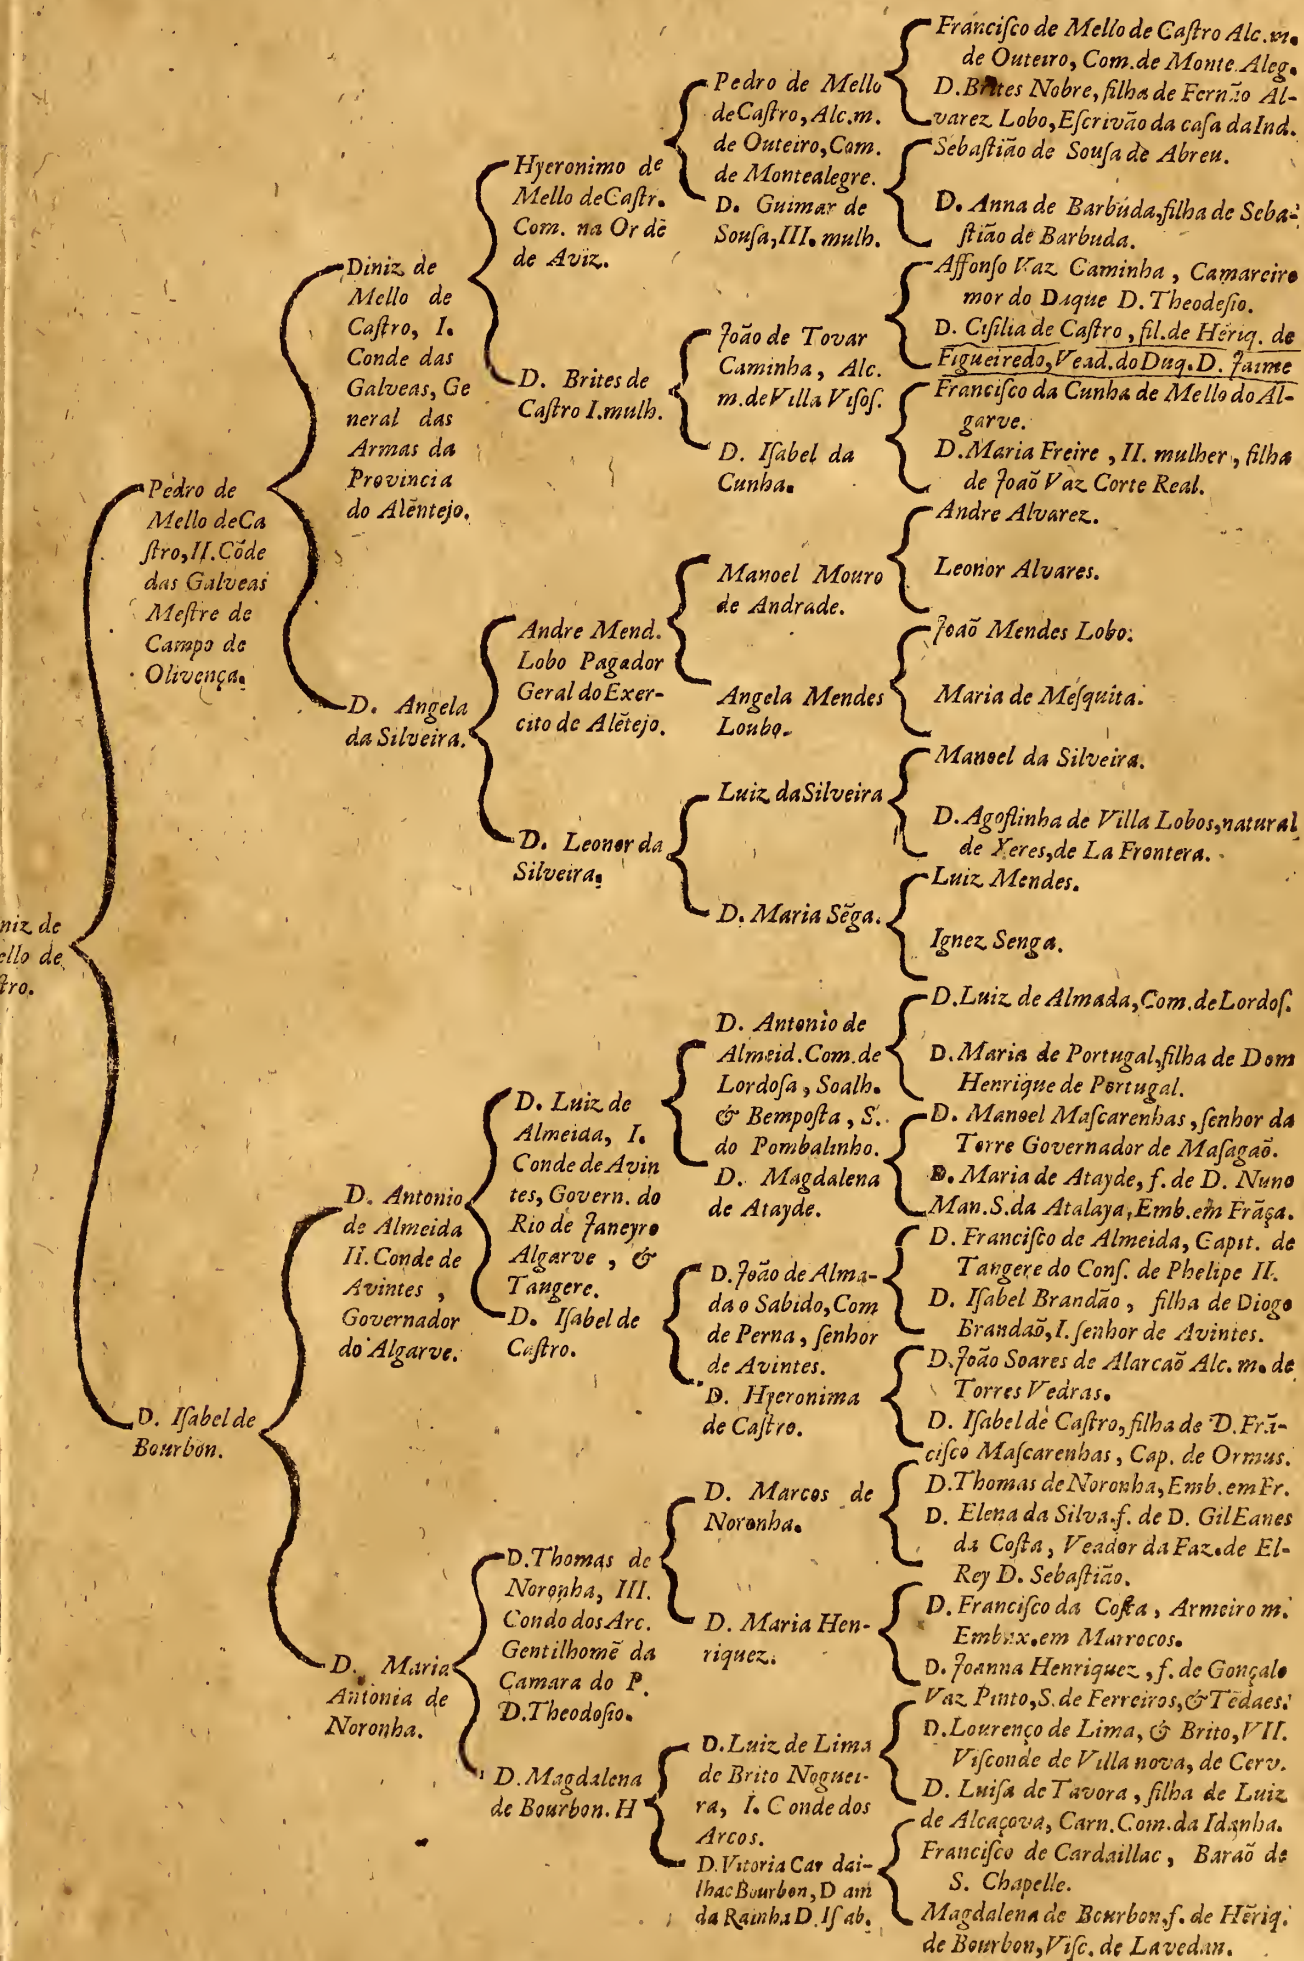 niz de
ello de
ſtro.
Pedro de
Mello deCa
ſtro, II. Cõde
das Galveas
Meſtre de
Campo de
Olivença.
D. Iſabel de
Bourbon.
Diniz de
Mello de
Caſtro, I.
Conde das
Galveas, Ge
neral das
Armas da
Provincia
do Alẽntejo.
D. Angela
da Silveira.
D. Antonio
de Almeida
II. Conde de
Avintes ,
Governador
do Algarve.
D. Maria
Antonia de
Noronha.
Hyeronimo de
Mello deCaſtr.
Com. na Or dẽ
de Aviz.
D. Brites de
Caſtro I. mulh.
Andre Mend.
Lobo Pagador
Geral do Exer-
cito de Alẽtejo.
D. Leonor da
Silveira.
D. Luiz de
Almeida, I.
Conde de Avin
tes, Govern. do
Rio de Janeyro
Algarve , &
Tangere.
D. Iſabel de
Caſtro.
D. Thomas de
Noronha, III.
Condo dos Arc.
Gentilhomẽ da
Camara do P.
D. Theodoſio.
D. Magdalena
de Bourbon. H
Pedro de Mello
deCaſtro, Alc. m.
de Outeiro, Com.
de Montealegre.
D. Guimar de
Souſa, III. mulh.
João de Tovar
Caminha, Alc.
m. de Villa Viſoſ.
D. Iſabel da
Cunha.
Manoel Mouro
de Andrade.
Angela Mendes
Loubo.
Luiz daSilveira
D. Maria Sẽga.
D. Antonio de
Almeid. Com. de
Lordoſa, Soalh.
& Bempoſta, S.
do Pombalinho.
D. Magdalena
de Atayde.
D. João de Alma-
da o Sabido, Com
de Perna, ſenhor
de Avintes.
D. Hyeronima
de Caſtro.
D. Marcos de
Noronha.
D. Maria Hen-
riquez.
D. Luiz de Lima
de Brito Noguei-
ra, I. Conde dos
Arcos.
D. Vitoria Car dai-
lhac Bourbon, D am
da Rainha D. Iſ ab.
Franciſco de Mello de Caſtro Alc. m.
de Outeiro, Com. de Monte Aleg.
D. Brites Nobre, filha de Fernão Al-
varez Lobo, Eſcrivão da caſa da Ind.
Sebaſtião de Souſa de Abreu.
D. Anna de Barbuda, filha de Seba-
ſtião de Barbuda.
Affonſo Vaz Caminha, Camareiro
mor do Duque D. Theodeſio.
D. Ciſilia de Caſtro, fil. de Hẽriq. de
Figueiredo, Vead. do Duq. D. Jaime
Franciſco da Cunha de Mello do Al-
garve.
D. Maria Freire, II. mulher, filha
de Joaõ Vaz Corte Real.
Andre Alvarez.
Leonor Alvares.
Joaõ Mendes Lobo.
Maria de Meſquita.
Manoel da Silveira.
D. Agoſtinha de Villa Lobos, natural
de Xeres, de La Frontera.
Luiz Mendes.
Ignez Senga.
D. Luiz de Almada, Com. de Lordoſ.
D. Maria de Portugal, filha de Dom
Henrique de Portugal.
D. Manoel Maſcarenhas, ſenhor da
Torre Governador de Maſagaõ.
D. Maria de Atayde, f. de D. Nuno
Man. S. da Atalaya, Emb. em Frãça.
D. Franciſco de Almeida, Capit. de
Tangere do Conſ. de Phelipe II.
D. Iſabel Brandão, filha de Diogo
Brandaõ, I. ſenhor de Avintes.
D. João Soares de Alarcaõ Alc. m. de
Torres Vedras.
D. Iſabel de Caſtro, filha de D. Frã-
ciſco Maſcarenhas, Cap. de Ormus.
D. Thomas de Noronha, Emb. em Fr.
D. Elena da Silva. f. de D. Gil Eanes
da Coſta, Veador da Faz. de El-
Rey D. Sebaſtião.
D. Franciſco da Coſta, Armeiro m.
Embax. em Marrocos.
D. Joanna Henriquez, f. de Gonçalo
Vaz Pinto, S. de Ferreiros, & Tẽdaes.
D. Lourenço de Lima, & Brito, VII.
Viſconde de Villa nova, de Cerv.
D. Luiſa de Tavora, filha de Luiz
de Alcaçova, Carn. Com. da Idanha.
Franciſco de Cardaillac, Baraõ de
S. Chapelle.
Magdalena de Bourbon, f. de Hẽriq.
de Bourbon, Viſc. de Lavedan.